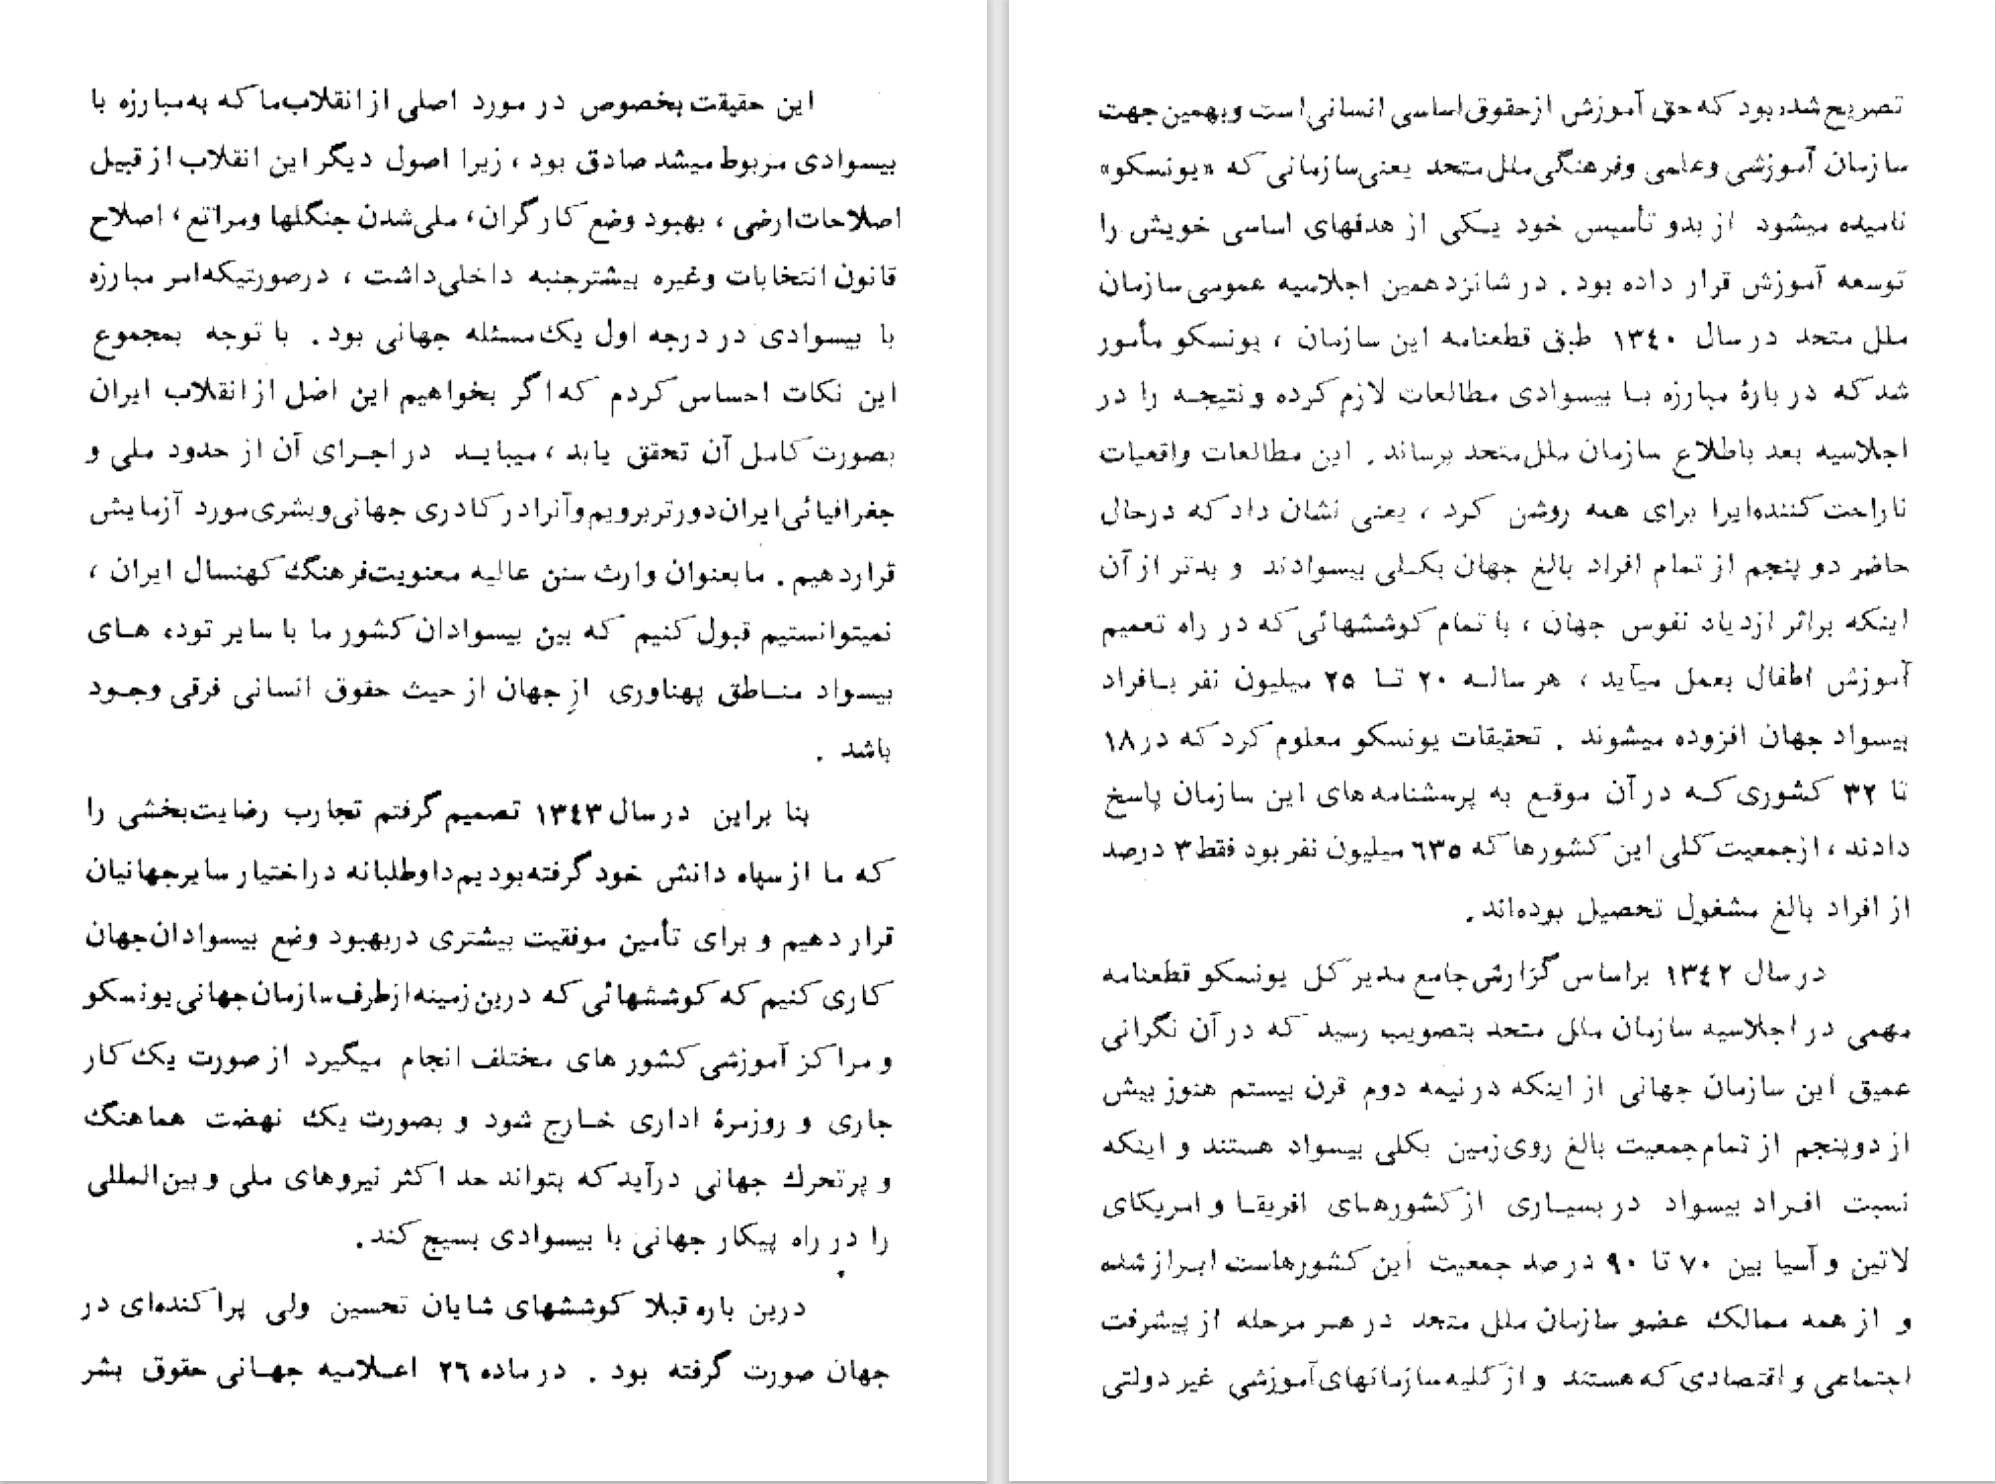 این حقیقت بخصوص در مورد اصلی از انقلاب ما که به مبارزه با
بیسوادی مربوط میشد صادق بود ، زیرا اصول دیگر این انقلاب از قبیل
اصلاحات ارضی ، بهبود وضع کارگران، ملی شدن جنگلها ومراتع، اصلاح
قانون انتخابات وغیره بیشترجنبه داخلی داشت ، درصورتیکه امر مبارزه
با بیسوادی در درجه اول یک مسئله جهانی بود . با توجه بمجموع
این نکات احساس کردم که اگر بخواهیم این اضل از انقلاب ایران
بصورت کامل آن تحقق یابد ، میبایـد در اجـرای آن از حدود ملی و
جغرافیائی ایران دورتر برویم وآنرا در کادری جهانی وبشری مورد آزمایش
قرار دهیم . ما بعنوان وارث سنن عالیه معنویت فرهنگ کهنسال ایران ،
نمیتوانستیم قبول کنیم که بین بیسوادان کشور ما با سایر توده هـای
بیسواد منـاطق پهناوری از جهان از حیث حقوق انسانی فرقی وجـود
باشد .
بنا براین در سال ۱۳۴۳ تصمیم گرفتم تجارب رضایت بخشی را
که ما از سپاه دانش خود گرفته بودیم داوطلبانه در اختیار سایر جهانیان
قرار دهیم و برای تأمین موفقیت بیشتری در بهبود وضع بیسوادان جهان
کاری کنیم که کوششهائی که درین زمینه از طرف سازمان جهانی یونسکو
و مراکز آموزشی کشور های مختلف انجام میگیرد از صورت یک کار
جاری و روزمرهٔ اداری خـارج شود و بصورت یک نهضت هماهنگ
و پرتحرك جهانی درآید که بتواند حد اکثر نیروهای ملی و بین المللی
را در راه پیکار جهانی با بیسوادی بسیج کند .
درین باره قبلا کوششهای شایان تحسین ولی پراکنده‌ای در
جهان صورت گرفته بود . در ماده ۲۶ اعـلامیه جهـانی حقوق بشر
تصریح شده بود که حق آموزش از حقوق اساسی انسانی است و بهمین جهت
سازمان آموزشی وعلمی وفرهنگی ملل متحد یعنی سازمانی که «یونسکو»
نامیده میشود از بدو تأسیس خود یـکی از هدفهای اساسی خویش را
توسعه آموزش قرار داده بود . در شانزدهمین اجلاسیه عمومی سازمان
ملل متحد در سال ۱۳۴۰ طبق قطعنامه این سازمان ، یونسکو مأمور
شد که در بارهٔ مبارزه بـا بیسوادی مطالعات لازم کرده و نتیجـه را در
اجلاسیه بعد باطلاع سازمان ملل متحد برساند . این مطالعات واقعیات
ناراحت کننده‌ایرا برای همه روشن کرد ، یعنی نشان داد که درحال
حاضر دو پنجم از تمام افراد بالغ جهان بکـلی بیسوادند و بدتر از آن
اینکه براثر ازدیاد نفوس جهان ، با تمام کوششهائی که در راه تعمیم
آموزش اطفال بعمل میآید ، هر سالـه ۲۰ تـا ۲۵ میلیون نفر بـافراد
بیسواد جهان افزوده میشوند . تحقیقات یونسکو معلوم کرد که در ۱۸
تا ۳۲ کشوری کـه در آن موقـع به پرسشنامه های این سازمان پاسخ
دادند ، از جمعیت کلی این کشورها که ۶۳۵ میلیون نفر بود فقط ۳ درصد
از افراد بالغ مشغول تحصیل بوده‌اند .
در سال ۱۳۴۲ براساس گزارش جامع مدیر کل یونسکو قطعنامه
مهمی در اجلاسیه سازمان ملل متحد بتصویب رسید که در آن نگرانی
عمیق این سازمان جهانی از اینکه در نیمه دوم قرن بیستم هنوز بیش
از دوپنجم از تمام جمعیت بالغ روی زمین بکلی بیسواد هستند و اینکه
نسبت افـراد بیسواد در بسیـاری از کشورهـای افریقـا و امریکای
لاتین و آسیا بین ۷۰ تا ۹۰ درصد جمعیت این کشورهاست ابـراز شده
و از همه ممالک عضو سازمان ملل متحد در هـر مرحله از پیشرفت
اجتماعی و اقتصادی که هستند و از کلیه سازمانهای آموزشی غیر دولتی